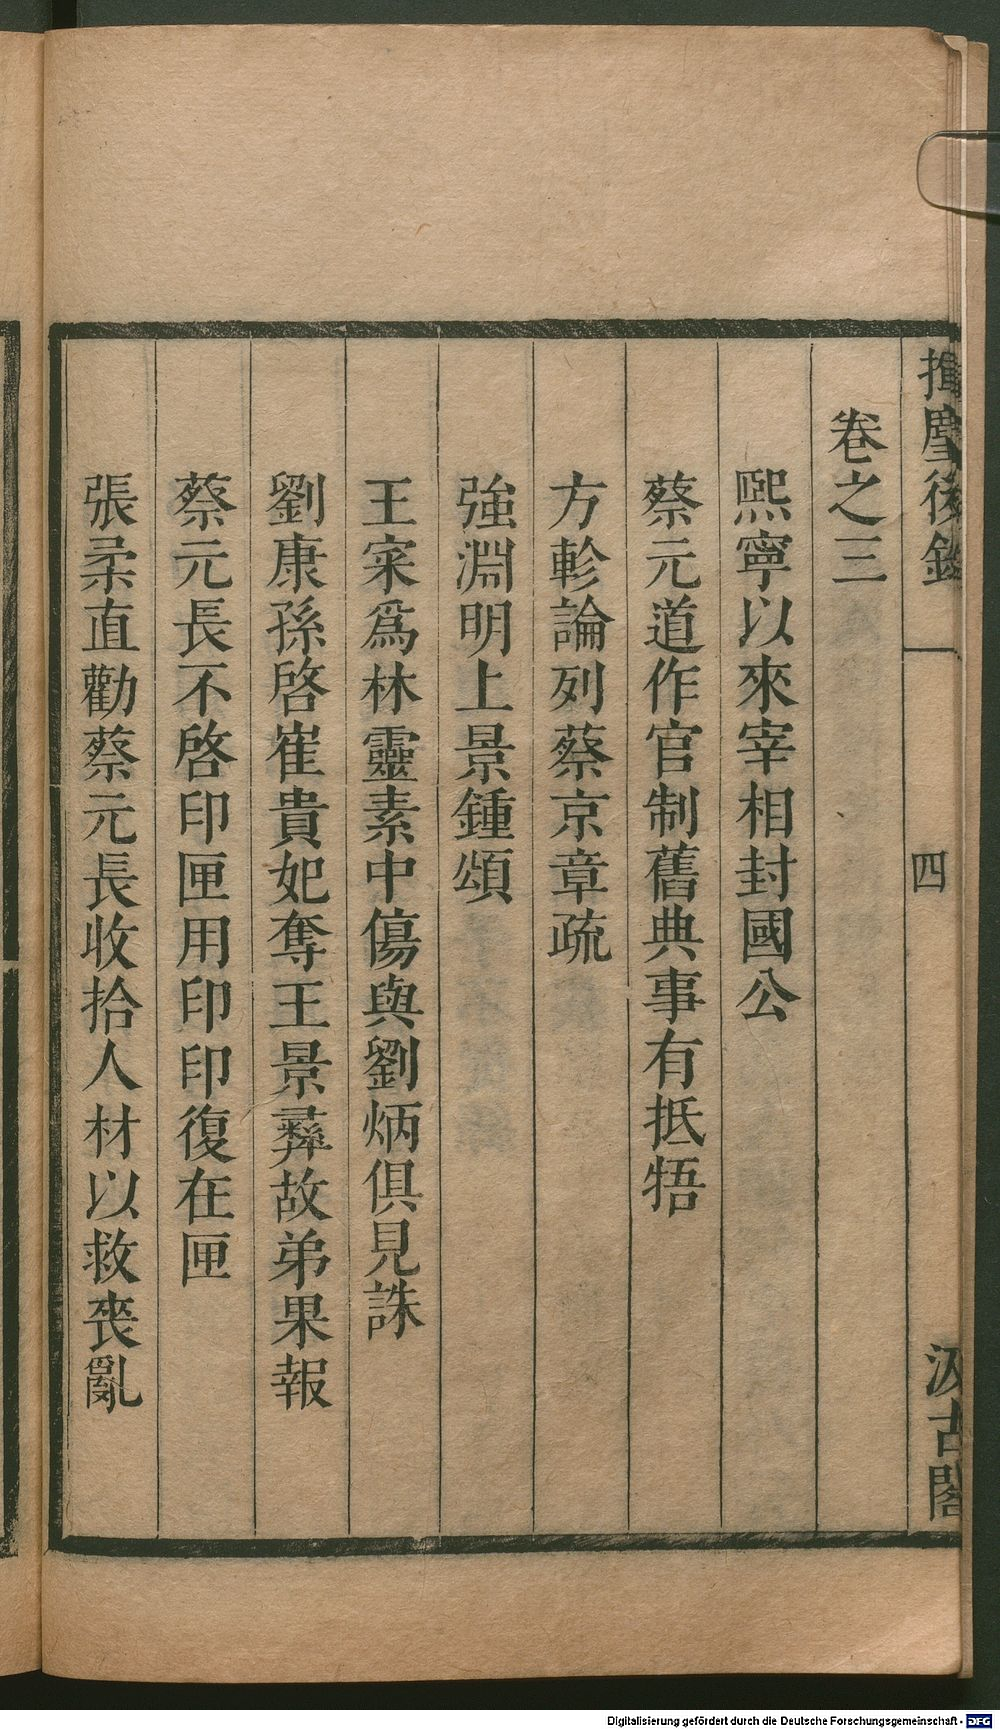 揮麈後錄
四
汲古閣
卷之三
熙寧以來宰相封國公
蔡元道作官制舊典事有抵牾
方軫論列蔡京章疏
強淵明上景鍾頌
王寀爲林靈素中傷與劉炳俱見誅
劉康孫啓崔貴妃奪王景彝故弟果報
蔡元長不啓印匣用印印復在匣
張柔直勸蔡元長收拾人材以救喪亂
Digitalisierung gefördert durch die Deutsche Forschungsgemeinschaft - DFG